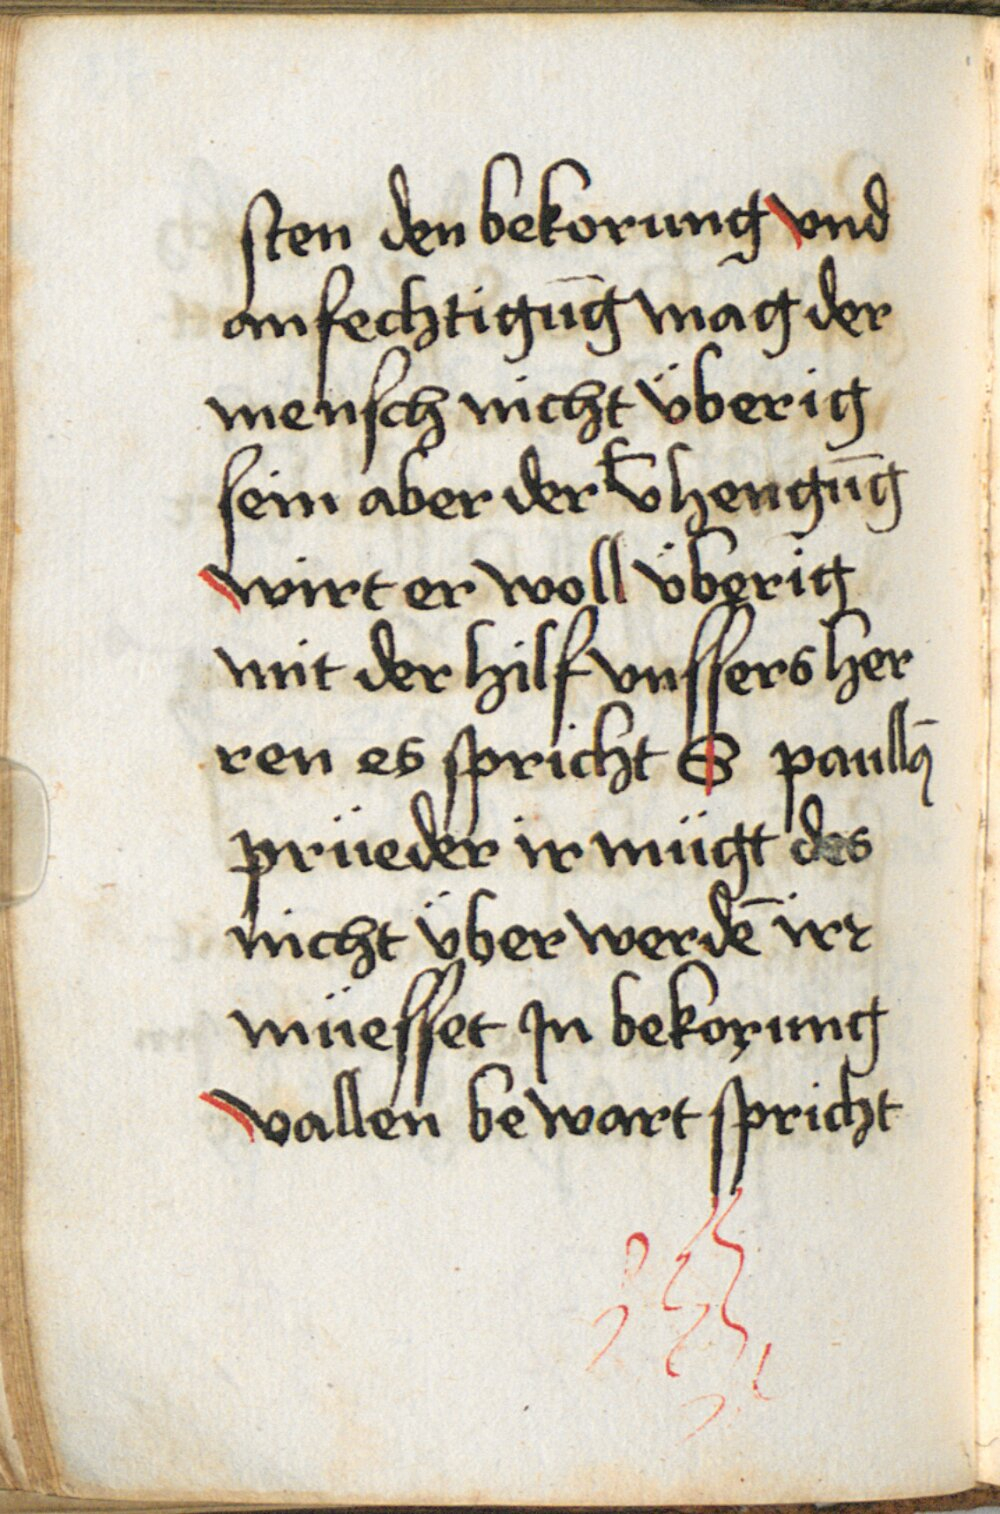 sten den bekorung vnd
anfechtigūg mag der
mensch nicht überig
sein aber der v̄hengūg
wirt er woll überig
mit der hilf vnssers her
ren es spricht S paullꝰ
prüeder ir mügt des
nicht über werdē irr
müesset In bekorung
vallen bewart spricht